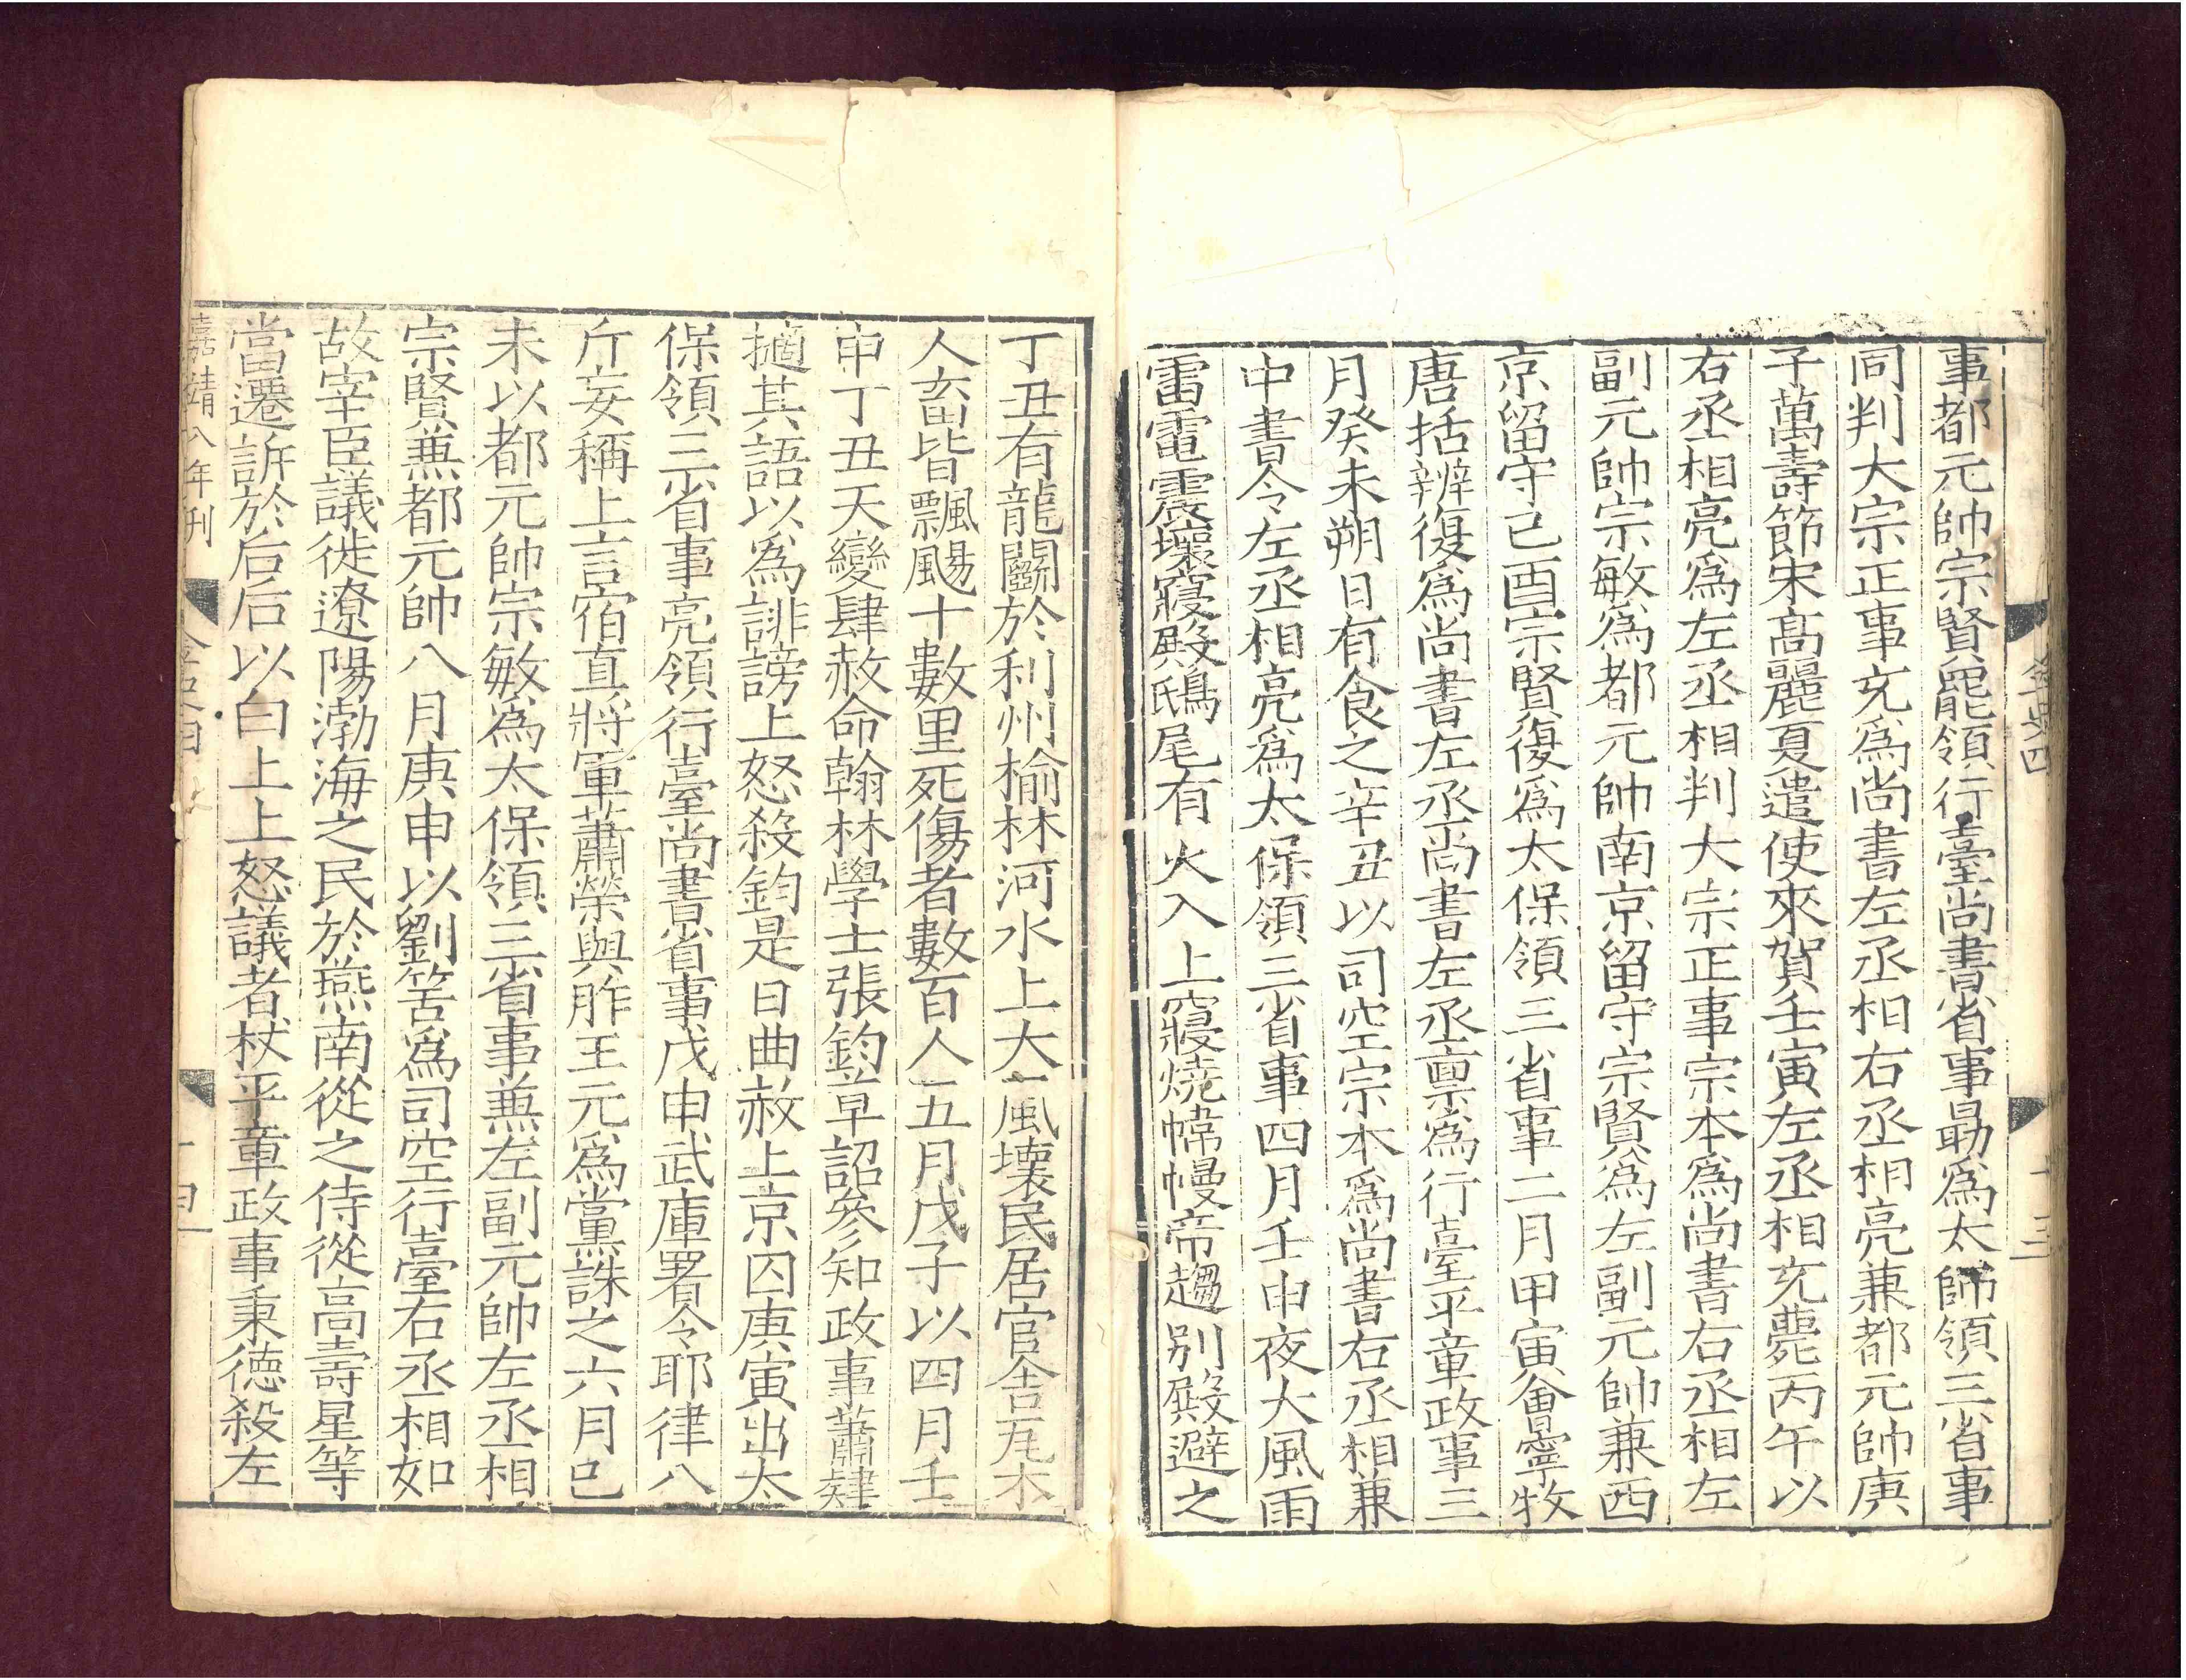 金史四
十三
事都元帥宗賢罷領行臺尚書省事勗爲太師領三省事
同判大宗正事充爲尚書左丞相右丞相亮兼都元帥庚
子萬壽節宋高麗夏遣使來賀壬寅左丞相充薨丙午以
右丞相亮爲左丞相判大宗正事宗本爲尚書右丞相左
副元帥宗敏爲都元帥南京留守宗賢爲左副元帥兼西
京留守己酉宗賢復爲太保領三省事二月甲寅會寧牧
唐括辨復爲尚書左丞尚書左丞禀爲行臺平章政事三
月癸未朔日有食之辛丑以司空宗本爲尚書右丞相兼
中書令左丞相亮爲太保領三省事四月壬申夜大風雨
雷電震壞寢殿鴟尾有火入上寢燒幃幔帝趨別殿避之
丁丑有龍鬭於利州榆林河水上大風壞民居官舍瓦木
人畜皆飄颺十數里死傷者數百人五月戊子以四月壬
申丁丑天變肆赦命翰林學士張鈞草詔參知政事蕭肄
擿其語以爲誹謗上怒殺鈞是日曲赦上京囚庚寅出太
保領三省事亮領行臺尚書省事戊申武庫署令耶律八
斤妄稱上言宿直將軍蕭榮與胙王元爲黨誅之六月己
未以都元帥宗敏爲太保領三省事兼左副元帥左丞相
宗賢兼都元帥八月庚申以劉筈爲司空行臺右丞相如
故宰臣議徙遼陽渤海之民於燕南從之侍從高壽星等
當遷訴於后后以白上上怒議者杖平章政事秉德殺左
嘉靖八年刊
金史四
十四